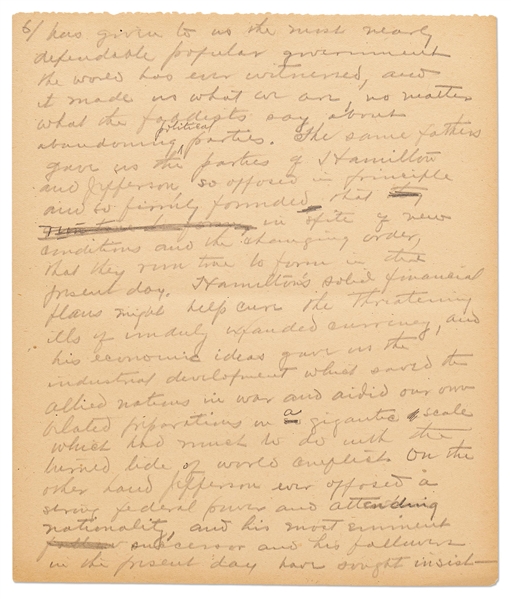 6/ has given to us the most nearly
dependable popular government
the world has ever witnessed, and
it made us what we are, no matter
what the faddists say about
abandoning political parties. The same fathers
gave us the parties of Hamilton
and Jefferson, so opposed in principle
and so firmly founded that
in spite of new
conditions and the changing order,
that they run true to form in the
present day. Hamilton's solid financial
plans might help cure the threatening
ills of unduly expanded currency, and
his economic ideas gave us the
industrial development which saved the
allied nations in war and aided our own
belated preparations on a gigantic scale
which had much to do with the
turned tide of world conflict. On the
other hand Jefferson ever opposed a
strong federal power and attending
nationality, and his most eminent
successor and his followers
in the present day have sought insist-